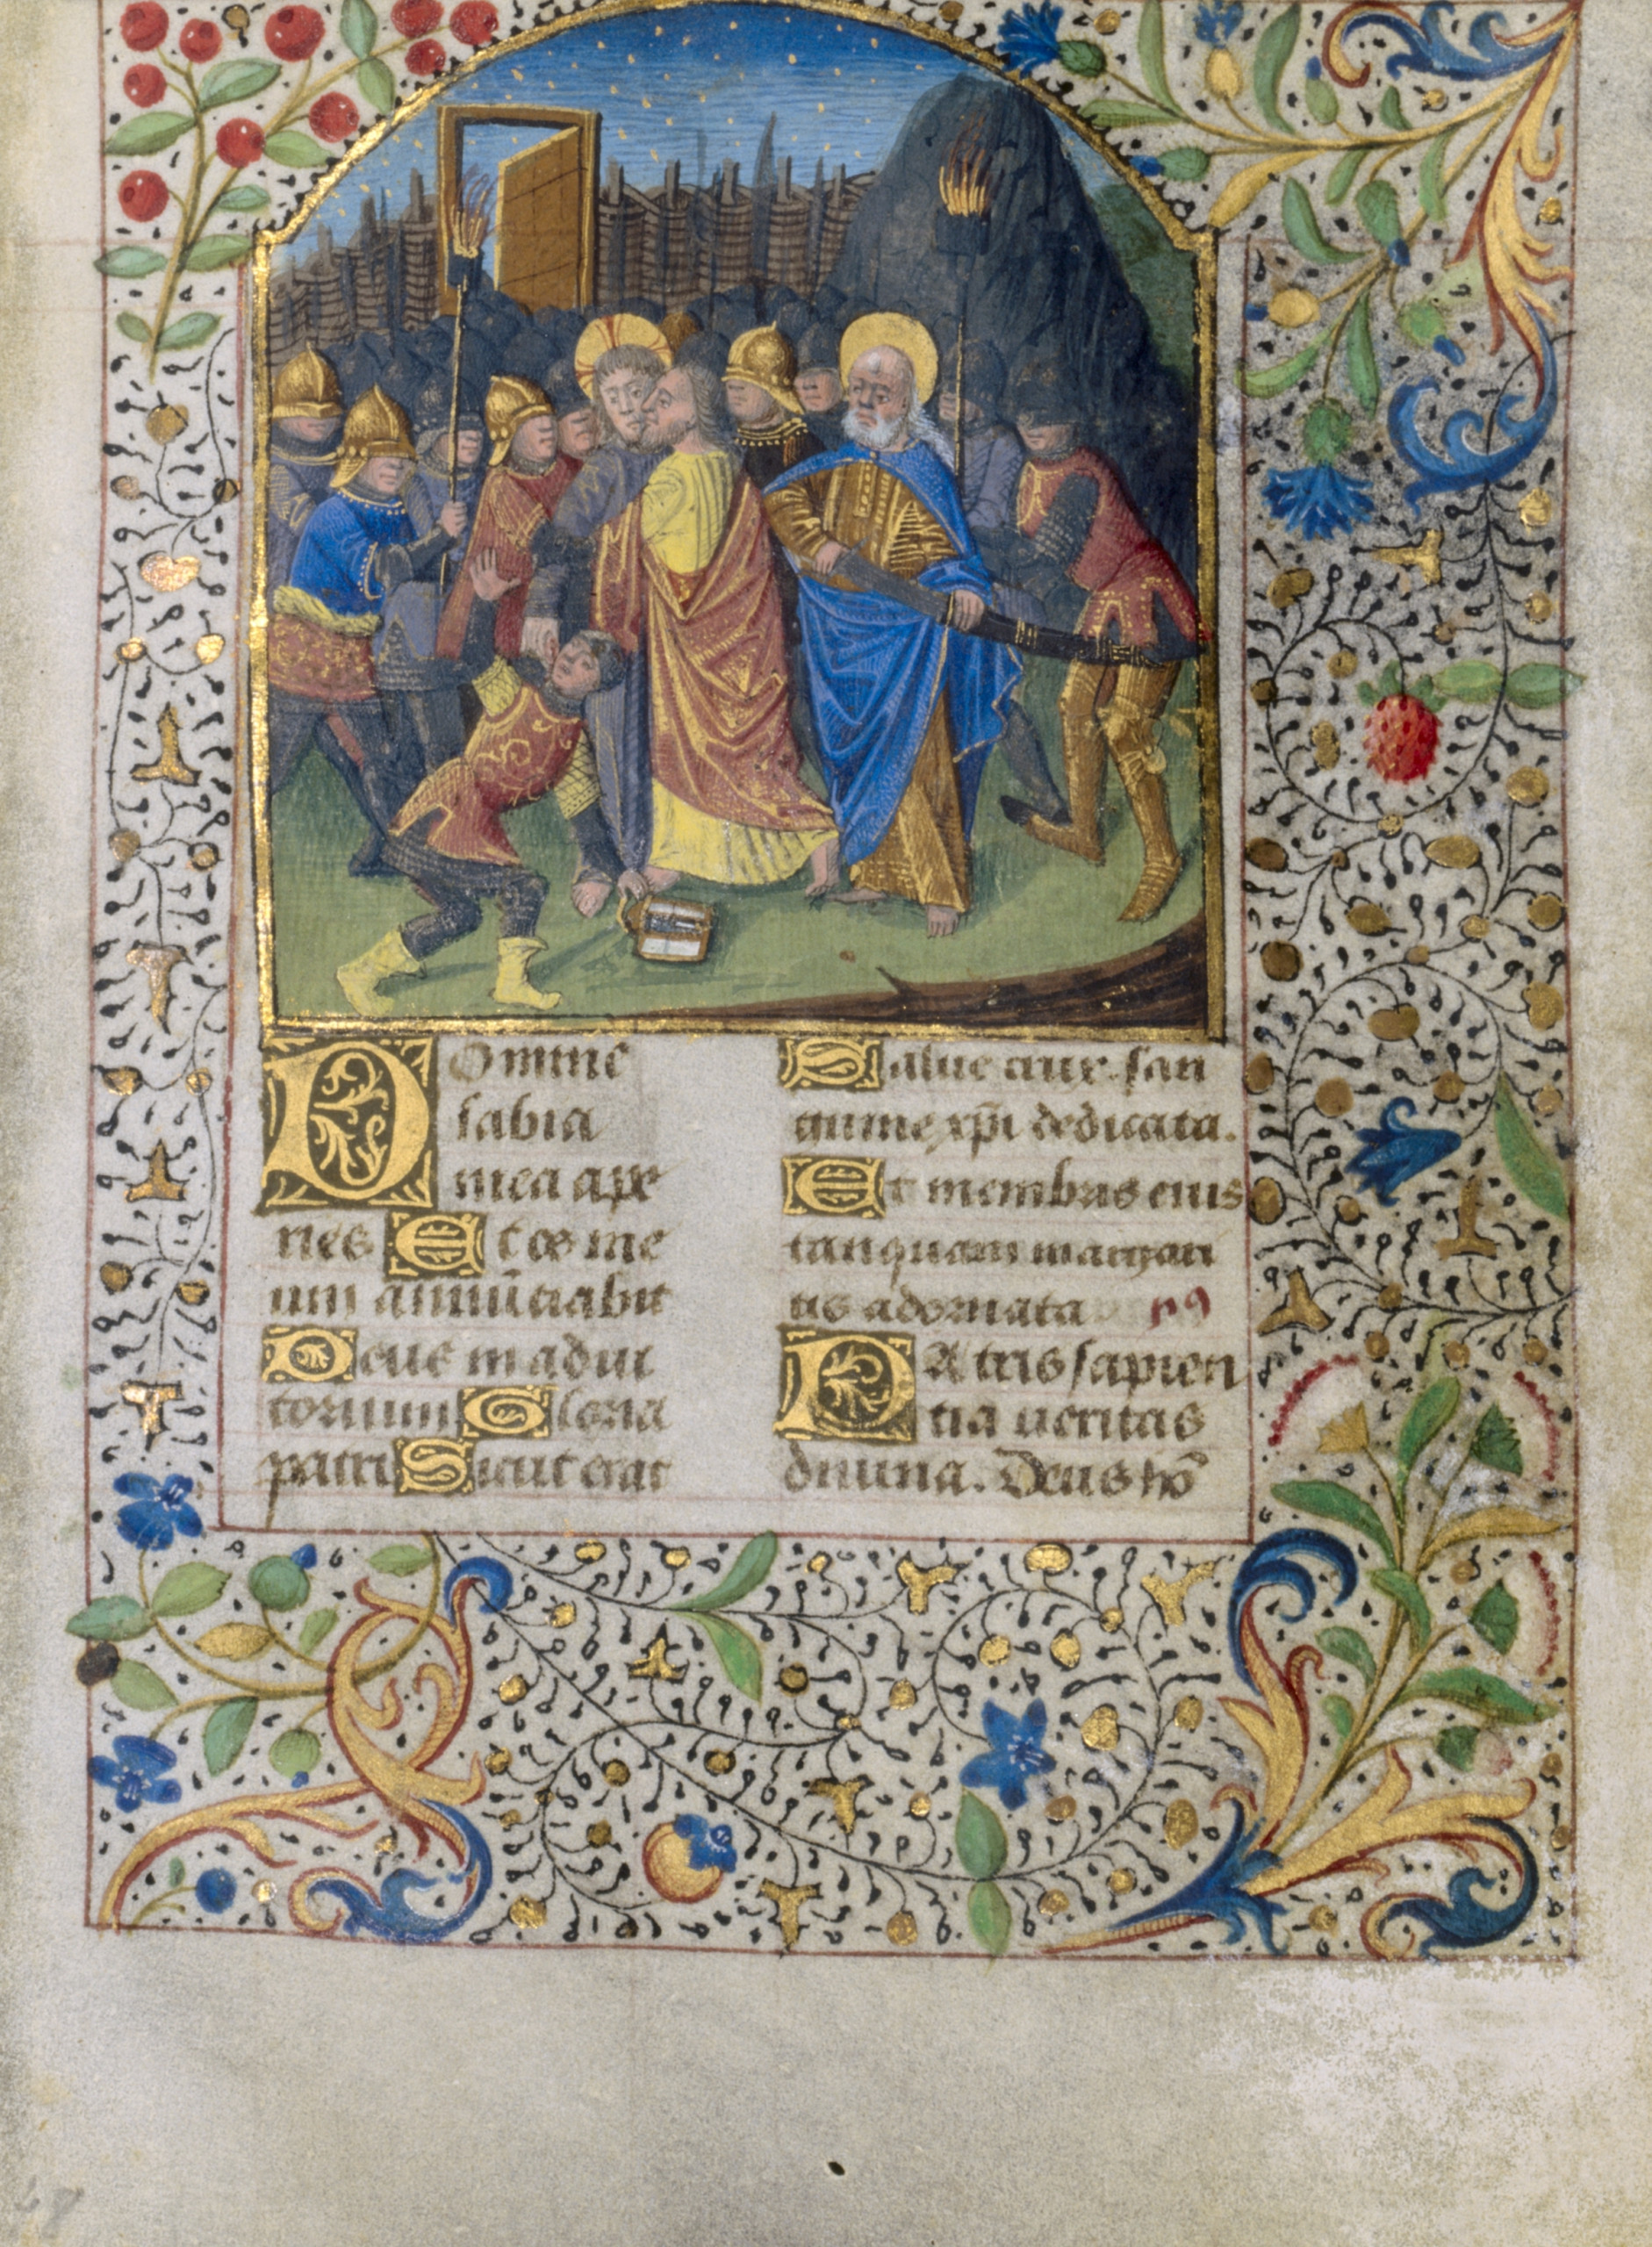 Domine
labia
mea ape
ries Et os me
um annūciabit
Deus in adiu
torium Gloria
patri Sicut erat
Salue crux san
guine xp̄i dedicata.
Et membris eius
tanquam margari
tis adornata
PAtris sapien
tia ueritas
diuina. Deus hō